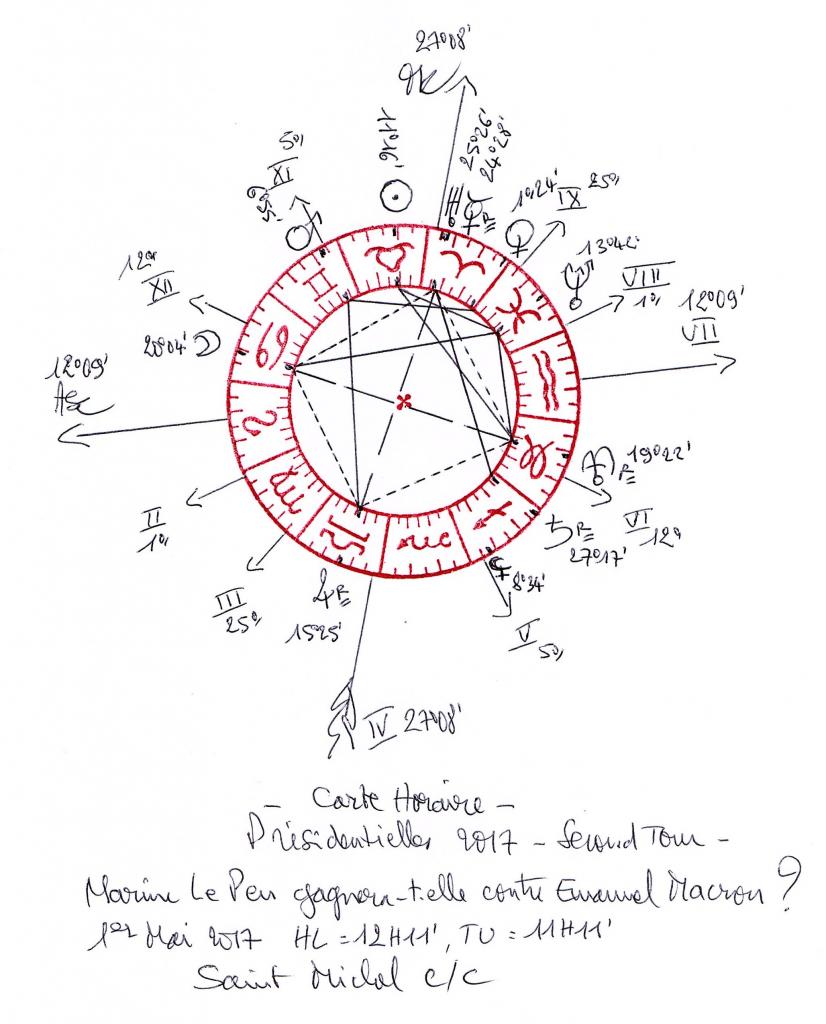 27°08'
5°
XI
11°16'
25°26'
24°28'
1°24'
IX 25°
13°42'
VIII
1°
12°09'
VII
12°
XII
20°04'
12°09'
Asc
19°22'
VI
12°
27°17'
8°34'
V 5°
II
1°
III
25°
15°25'
IV 27°08'
- Carte Horaire -
Présidentielles 2017 - Second Tour -
Marine Le Pen gagnera-t-elle contre Emanuel Macron ?
1er Mai 2017 HL = 12H11', TU = 11H11'
Saint Michel c/c